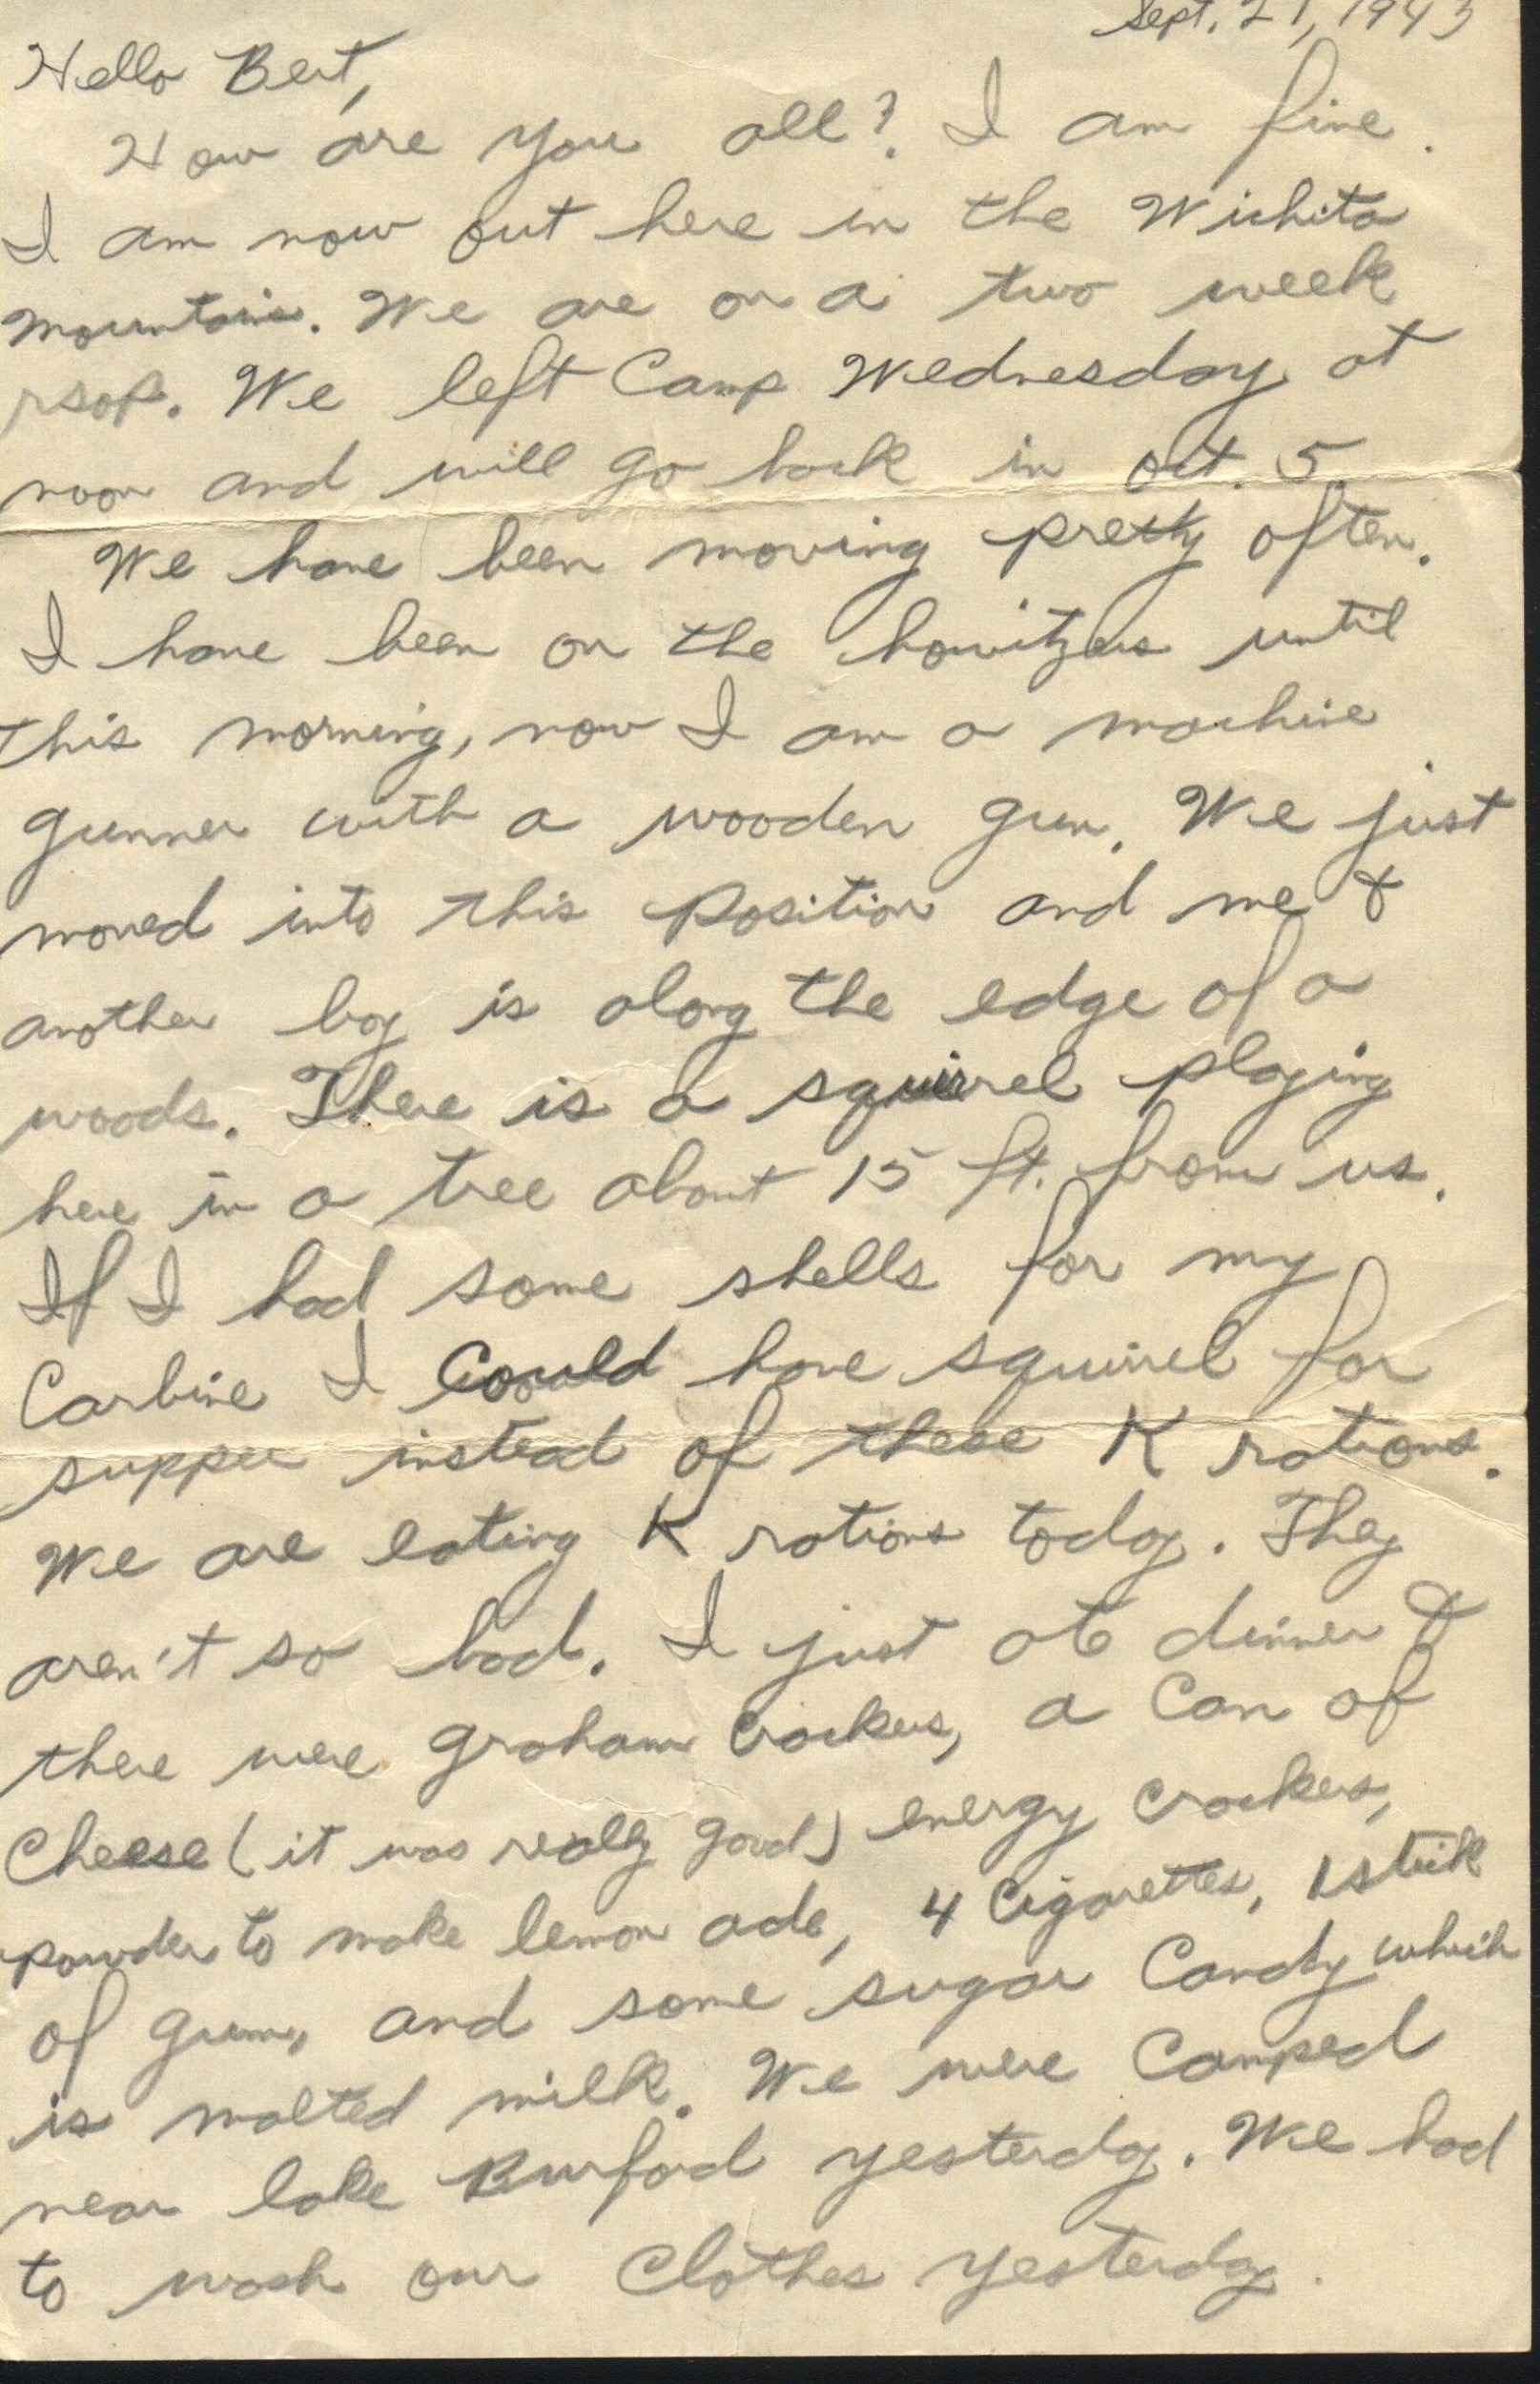 Sept. 21, 1943
Hello Bert,
How are you all? I am fine.
I am now out here in the Wichita
Mountains. We are on a two week
rsop. We left Camp Wednesday at
noon and will go back in Oct. 5.
We have been moving pretty often.
I have been on the howitzers until
this morning, now I am a machine
gunner with a wooden gun. We just
moved into this position and me &
another boy is along the edge of a
woods. There is a squirrel playing
here in a tree about 15 ft. from us.
If I had some shells for my
Carbine I Could have squirrel for
supper instead of these K rations.
We are eating K rations today. They
aren't so bad. I just ate dinner &
there were graham Crackers, a Can of
Cheese (it was really good) energy Crackers,
powder to make lemon ade, 4 Cigarettes, 1 stick
of gum, and some sugar Candy which
is malted milk. We were Camped
near lake Burford yesterday. We had
to wash our Clothes yesterday.